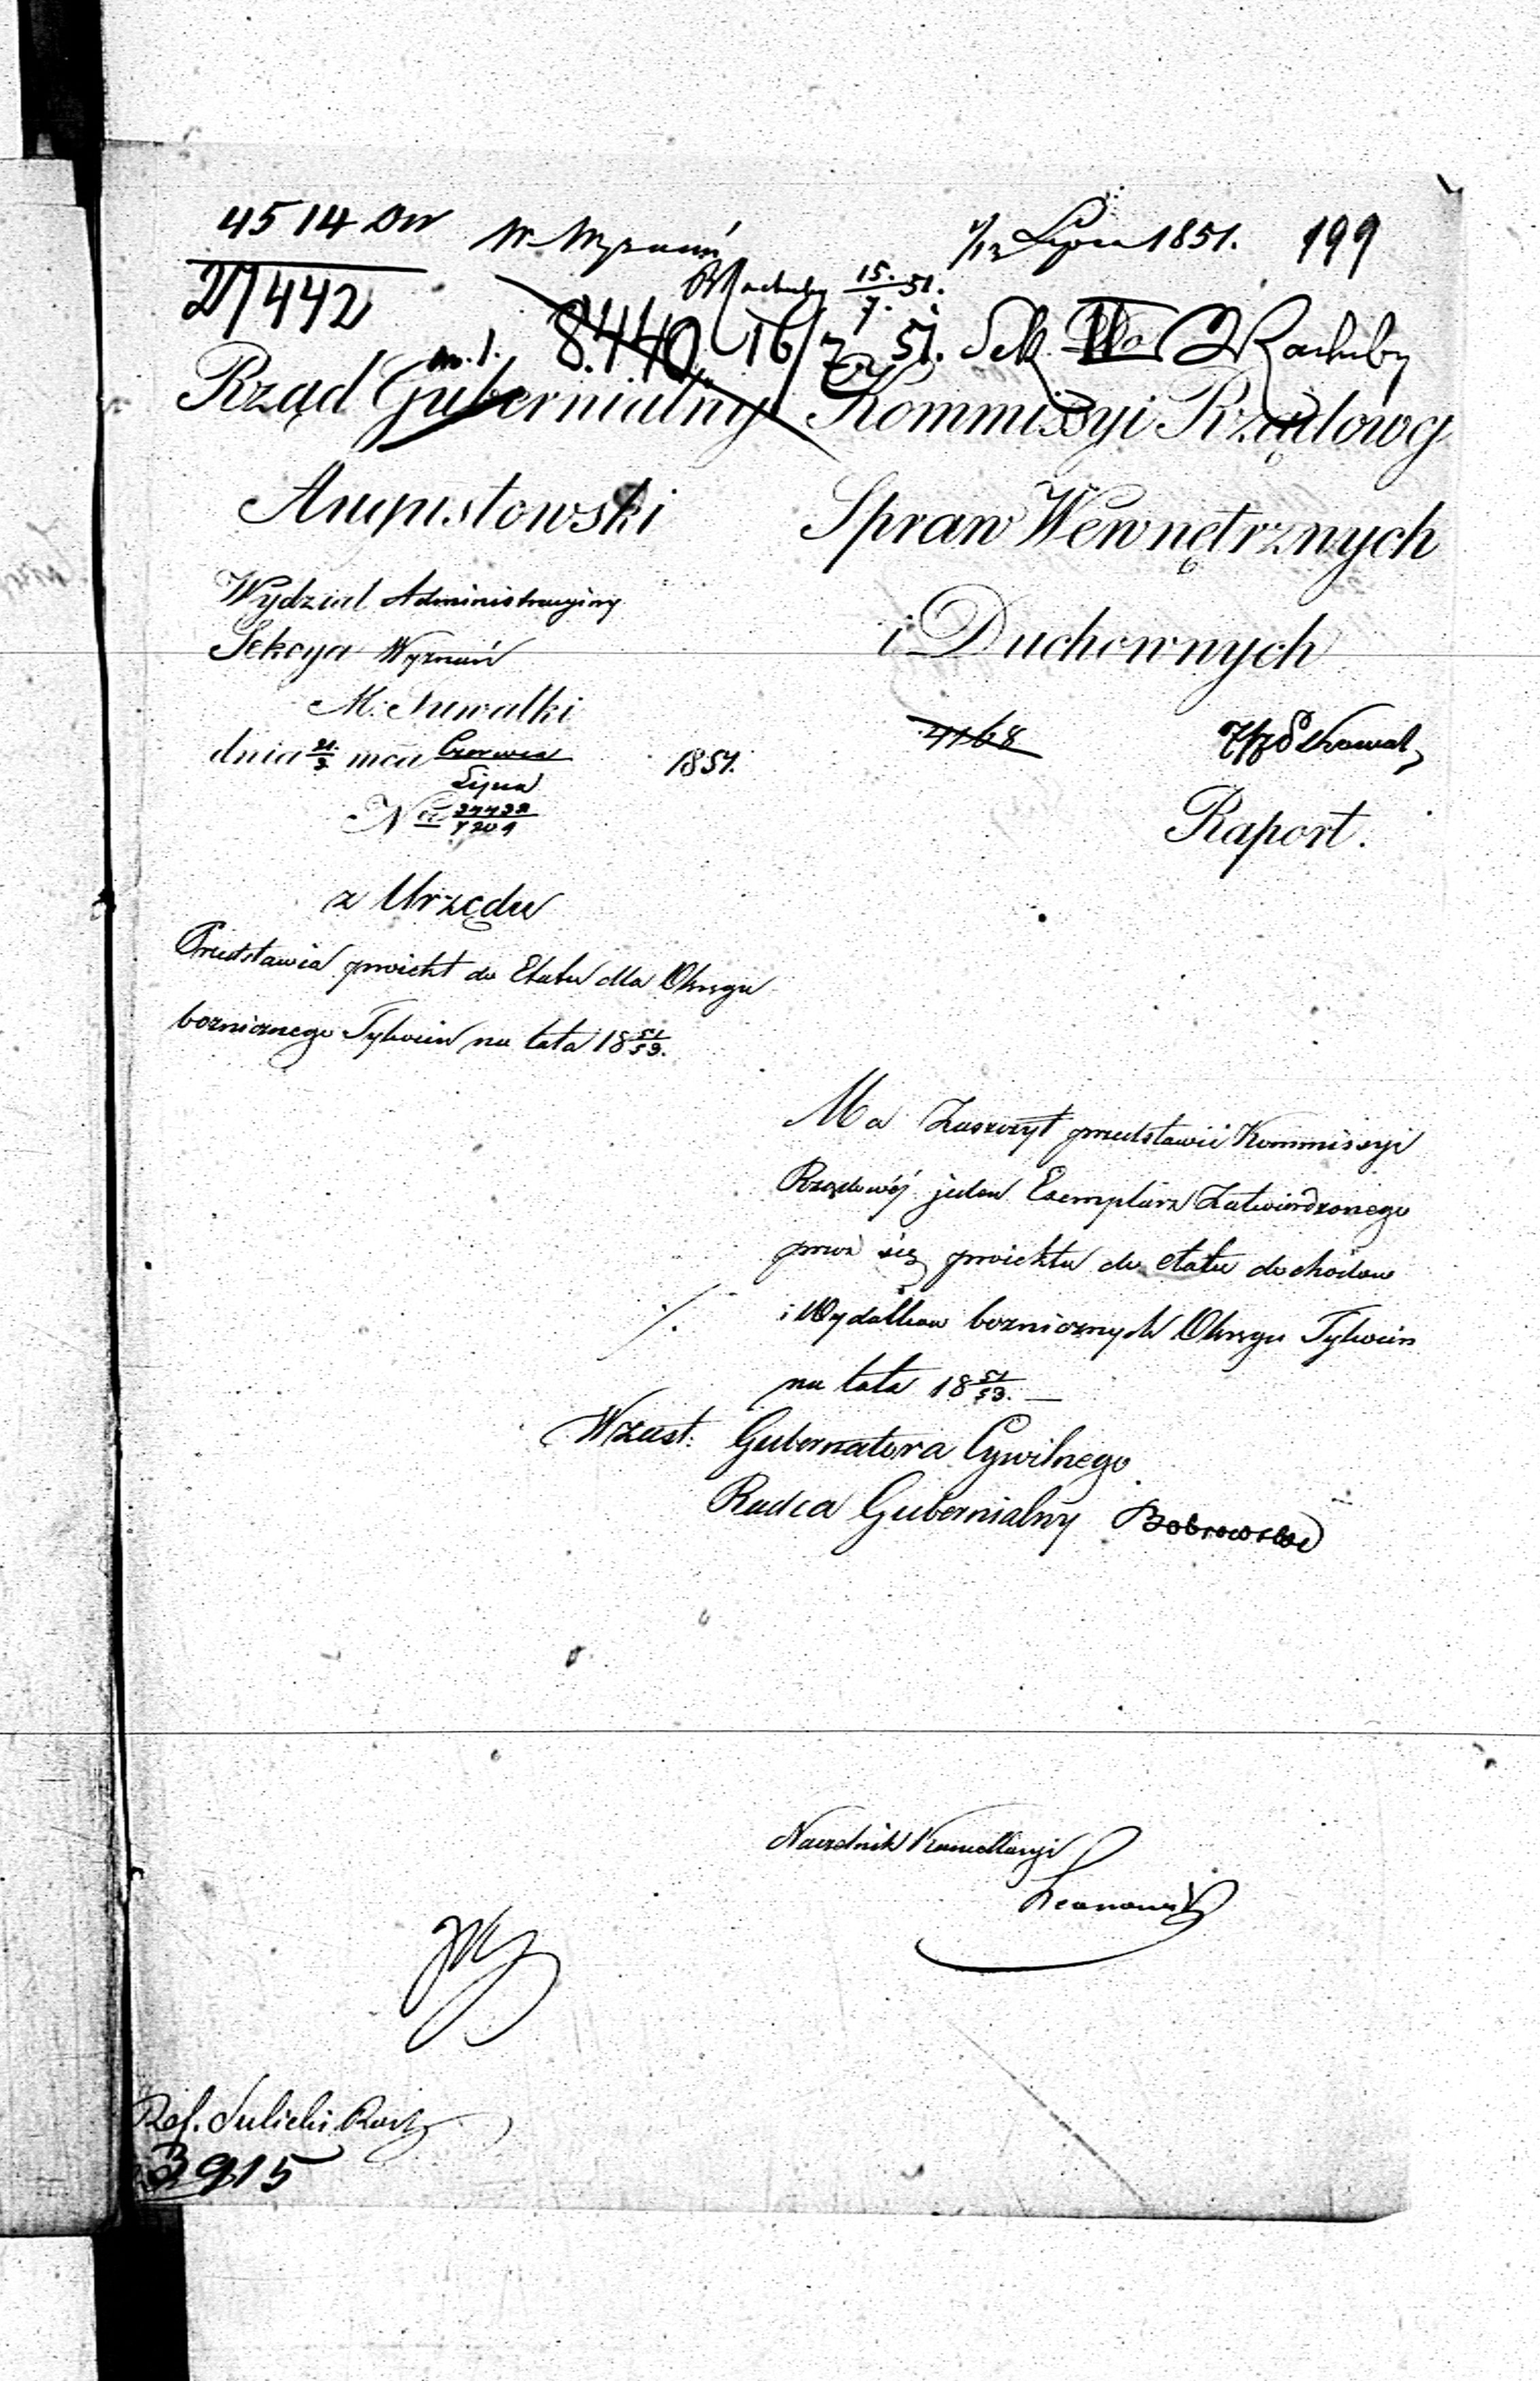 4514 DW
27442
W. Wyznań
1/13 Lipca 1851.
199
Rachuby 15/7. 51.
8.440
16/7 51. Sek. Rachuby
Rząd Gubernialny
Augustowski
Wydział Administracyjny
Sekcya Wyznań
M. Suwałki
dnia 21/3 mca Czerwca/Lipca 1851.
No 37438/7201
z Urzędu
Przedstawia proiekt do Etatu dla Okręgu
bożnicznego Tykocin na lata 18 51/53.
Kommissyi Rządowej
Spraw Wewnętrznych
i Duchownych
4168
Raport.
Ma Zaszczyt przedstawić Kommissyi
Rządowéj jeden Exemplarz Zatwierdzonego
przez się proiektu do etatu dochodow
i Wydatkow bożnicznych Okręgu Tykocin
na lata 18 51/53. —
W zast. Gubernatora Cywilnego
Radca Gubernialny Bobrowski
Naczelnik Kancellaryi
Ref. Sulicki
3915